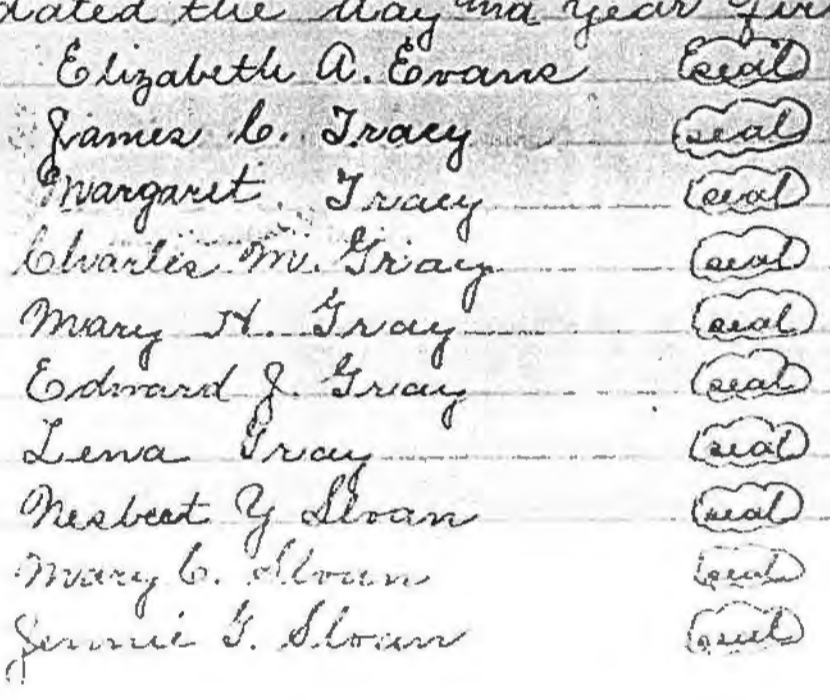 dated the day and year fir
Elizabeth A. Evans seal
James C. Tracy seal
Margaret Tracy seal
Charles M. Gray seal
Mary H. Gray seal
Edward J. Gray seal
Lena Gray seal
Nesbeet Y Sloan seal
Mary C. Sloan seal
Jennie G. Sloan seal